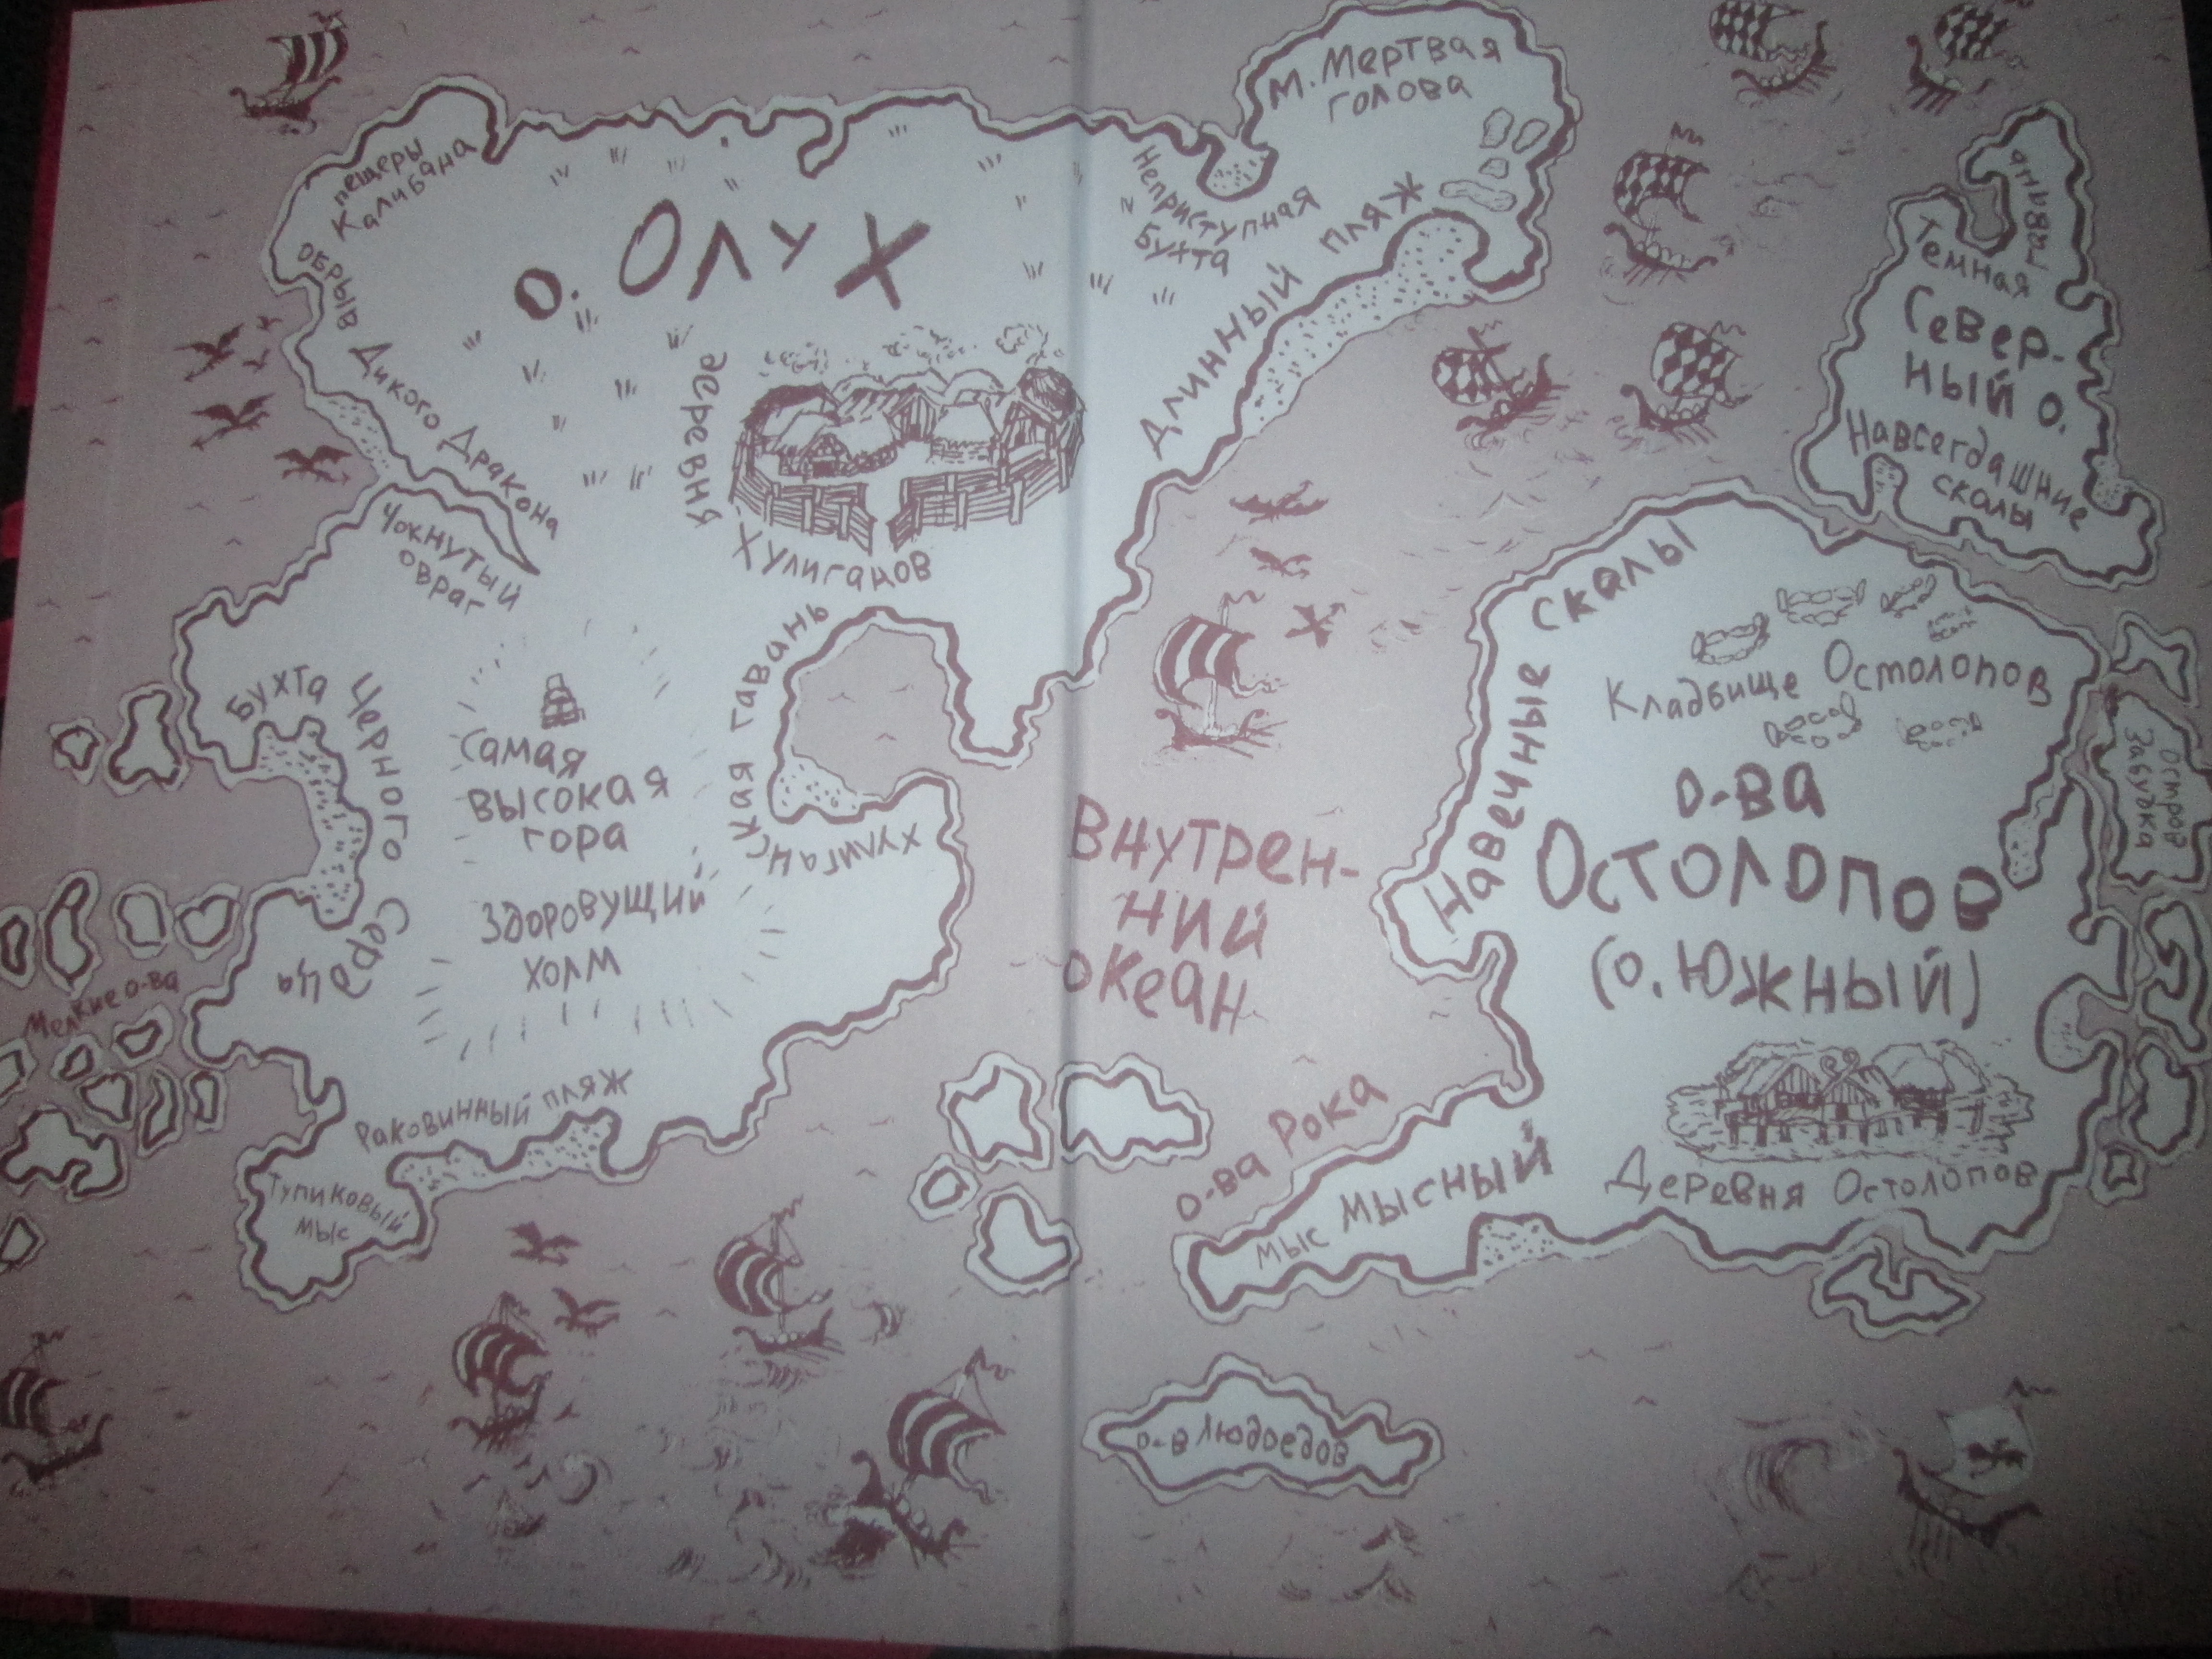 М. Мертвая
голова
пещеры
Калибана
обрыв Дикого Дракона
о. Олух
Неприступная
Бухта
Длинный пляж
деревня
Хулиганов
Чокнутый
овраг
Бухта Черного Сердца
Самая
высокая
гора
Здоровущий
холм
Хулиганская гавань
Мелкие о-ва
Раковинный пляж
Тупиковый
мыс
Внутрен-
ний
океан
о-ва Рока
о-в Людоедов
Темная
Север-
ный о.
Навсегдашние
скалы
Навечные скалы
Кладбище Остолопов
о-ва
Остолопов
(о. Южный)
Деревня Остолопов
мыс Мысный
Остров
Забудка